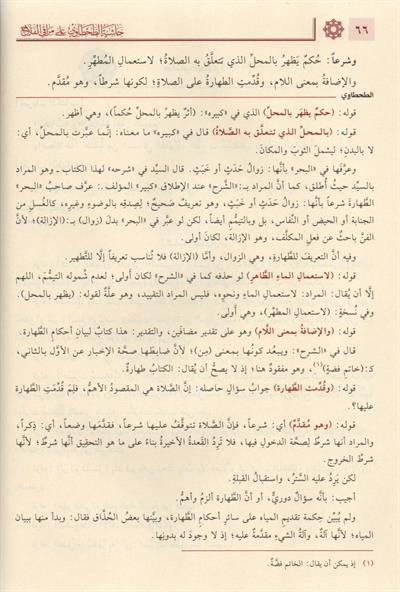 ٦٦
حاشية الطحطاوي على مراقي الفلاح
وشرعاً: حُكمٌ يَظهرُ بالمحلِّ الذي تتعلَّق به الصلاةُ؛ لاستعمال المُطهِّرِ.
والإضافةُ بمعنى اللام، وقُدّمتِ الطهارةُ على الصلاةِ؛ لكونها شرطاً، وهو مُقدَّم.
الطحطاوي
قوله: (حكمٌ يظهَر بالمحلِّ) الذي في «كبيره»: (أثرٌ يظهرُ بالمحلِّ حُكماً)، وهي أظهر.
قوله: (بالمحلِّ الذي تتعلَّق به الصَّلاةُ) قال في «كبيره» ما معناه: إنَّما عبَّرت بالمحلِّ، أي:
لا بالبدنِ؛ ليشملَ الثوبَ والمكانَ.
وعرَّفها في «البحر» بأنَّها: زوالُ حَدَثٍ أو خَبَثٍ. قال السيِّد في «شرحه» لهذا الكتاب ـ وهو المراد
بالسيِّد حيثُ أُطلق، كما أنَّ المراد بـ: «الشَّرح» عند الإطلاق «كبير» المؤلف ـ: عرَّف صاحبُ «البحر»
الطَّهارة شرعاً بأنَّها: زوالُ حَدَثٍ أو خَبَثٍ، وهو تعريفٌ صَحيحٌ؛ لِصِدقِه بالوضوءِ وغيرِه، كالغُسلِ من
الجنابة أو الحيض أو النُّفاس، بل وبالتيمُّمِ أيضاً، لكن لو عبَّر في «البحر» بدلَ (زوال) بـ: (الإزالة)؛ لأنَّ
الفنَّ باحثٌ عن فعلِ المكلَّف، وهو الإزالة، لكانَ أولى.
وفيه أنَّ التعريفَ للطَّهارةِ، وهي الزوال، وأمَّا (الإزالة) فلا تُناسب تعريفاً إلَّا للتَّطهير.
قوله: (لاستعمالِ الماءِ الطَّاهرِ) لو حذفه كما في «الشرح» لكان أَولى؛ لعدم شُموله التيمُّمَ، اللهم
إلَّا أن يُقال: المراد: لاستعمالِ الماءِ ونحوِه، فليس المراد التقييد، وهو علَّة لقوله: (يظهر بالمحل).
وفي نُسخةٍ: (لاستعمالِ المطهِّر)، وهي أَولى.
قوله: (والإضافةُ بمعنى اللَّام) وهو على تقدير مضافَين، والتقدير: هذا كتابٌ لبيانِ أحكامِ الطَّهارة.
قال في «الشرح»: ويبعُد كونُها بمعنى (مِن)؛ لأنَّ ضابطَها صحَّة الإخبارِ عن الأوَّل بالثاني،
كـ: (خاتم فضةٍ)(١)، وهو مفقودٌ هنا؛ إذ لا يصحُّ أن يُقال: الكتاب طهارةٌ.
قوله: (وقُدّمت الطَّهارة) جوابُ سؤالٍ حاصله: إنَّ الصَّلاة هي المقصودُ الأهمُّ، فلِمَ قُدِّمتِ الطَّهارة
عليها؟.
قوله: (وهو مُقدَّمٌ) أي: شرعاً، فإنَّ الصَّلاة تتوقَّفُ عليها شرعاً، فقدَّمها وضعاً، أي: ذِكراً،
والمراد أنها شرطٌ لِصحَّة الدخول فيها، فلا تَرِدُ القَعدةُ الأخيرةُ بناءً على ما هو التحقيق أنَّها شرطٌ؛ لأنَّه
شرطُ الخروج.
لكن يَرِدُ عليه السَّترُ، واستقبالُ القبلةِ.
أجيب: بأنَّه سؤالٌ دوريٌّ، أو أنَّ الطَّهارة ألزمُ وأهمُّ.
ولم يُبيِّن حِكمة تقديمِ المياه على سائرِ أحكامِ الطَّهارة، وبيَّنها بعضُ الحُذَّاقِ فقال: وبدأ منها ببيان
المياه؛ لأنَّها آلةٌ، وآلةُ الشيءِ مقدَّمة عليه؛ إذ لا وجودَ له بدونِها.
(١) إذ يمكن أن يقال: الخاتم فضَّةٌ.